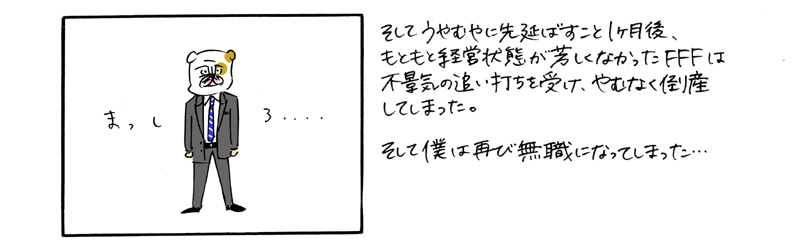 まっしろ‥‥
そしてうやむやに先延ばすこと1ヶ月後、
もともと経営状態が芳しくなかったFFFは
不景気の追い打ちを受け、やむなく倒産
してしまった。
そして僕は再び無職になってしまった…